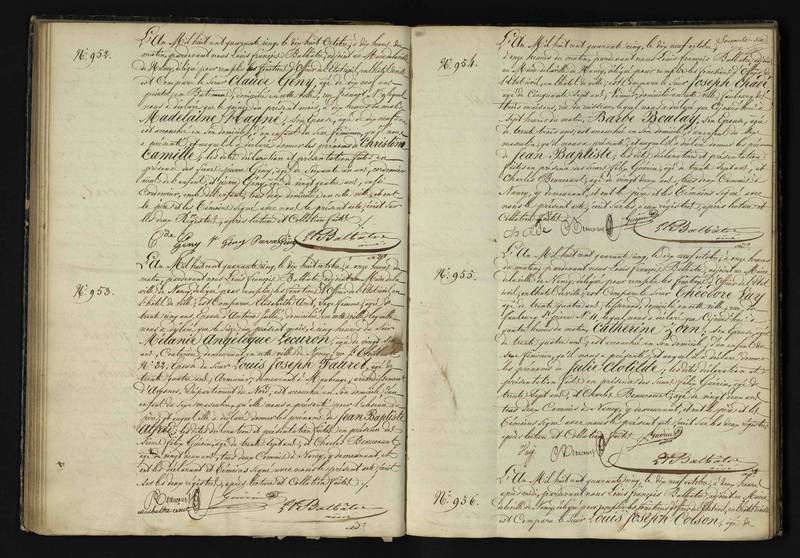 N.º 952.
L'An Mil huit cent quarante cinq, le dix huit Octobre, à dix heures du
matin, pardevant nous Louis François Ballâtre, adjoint au Maire de la ville
de Nancy, délégué pour remplir les fonctions d'Officier de l'Etat civil,
est Comparu le Sieur Claude Geny, âgé de dix neuf ans,
peintre en Bâtiment, domicilié en cette ville, lequel
nous a déclaré que le quinze du présent mois, à dix heures du matin
Madelaine Magne, Son Epouse, âgée de dix neuf ans
est accouchée en son domicile, d'un enfant du Sexe féminin, qu'il nous
a présenté, et auquel il a déclaré donner les prénoms de Christine
Camille, les dites déclaration et présentation faites en
présence des Sieurs Pierre Geny, âgé de Soixante un ans, cordonnier
ayeul de l'enfant, et Pierre Geny, âgé de vingt quatre ans,
Cordonnier, oncle de l'enfant, tous deux domiciliés en cette ville, et ont
le père et les témoins signé avec nous le présent acte, inscrit sur
les deux Registres, après lecture et Collation faites.
Geny Geny Pierre Geny
Ballâtre
N.º 953.
L'An Mil huit cent quarante cinq, le dix huit Octobre, à onze heures du
matin, pardevant nous Louis François Ballâtre, adjoint au Maire de la
ville de Nancy, délégué pour remplir les fonctions d'Officier de l'Etat civil, en
l'hôtel de ville, est Comparue Elisabeth Ami, Sage femme, âgée de
trente cinq ans, Epouse d'Antoine, domiciliée en cette ville, laquelle
nous a déclaré que le Seize du présent mois, à cinq heures du Soir
Mélanie Angélique Lecuron, âgée de vingt
ans, demeurant en cette ville de Nancy,
N.º 32, Epouse du Sieur Louis Joseph Fauret, âgé de
trente quatre ans, Armurier, demeurant à Maubeuge, arrondissement
d'Avesnes, Département du Nord, est accouchée en son domicile, d'un
enfant du Sexe masculin, qu'elle nous a présenté pour l'absence du
père, et auquel elle a déclaré donner les prénoms de Jean Baptiste
Alfred, les dites déclaration et présentation faites en présence des
Sieurs Félix Guérin, âgé de trente Sept ans, et Charles Beaucourt,
âgé de vingt neuf ans, tous deux Commis à Nancy, y demeurant, et
ont les déclarante et témoins signé avec nous le présent acte, inscrit
sur les deux registres, après lecture et Collation faites.
Guérin
Ballâtre
N.º 954.
L'An Mil huit cent quarante cinq, le dix neuf octobre,
à onze heures du matin, pardevant nous Louis François Ballâtre, adjoint
au Maire de la ville de Nancy, délégué pour remplir les fonctions d'Officier de
l'Etat civil, en l'hôtel de ville, est Comparu le Sieur Joseph
âgé de Cinquante Sept ans, domicilié en cette ville, faubourg des
trois maisons, lequel nous a déclaré que
Sept heures du matin, Barbe Boulay, Son Epouse, âgée
de trente trois ans, est accouchée en Son domicile, d'un enfant du Sexe
masculin, qu'il nous a présenté, et auquel il a déclaré donner les prénoms
de Jean Baptiste, les dites déclaration et présentation
faites en présence des Sieurs Félix Guérin, âgé de trente Sept ans, et
Charles Beaucourt, âgé de vingt neuf ans, tous deux Commis à
Nancy, y demeurant, et ont le père et les témoins signé avec
nous le présent acte, inscrit sur les deux registres, après lecture et
Collation faites.
Guérin
Ballâtre
N.º 955.
L'An Mil huit cent quarante cinq, le dix neuf octobre, à onze heures
du matin, pardevant nous Louis François Ballâtre, adjoint au Maire
de la ville de Nancy, délégué pour remplir les fonctions d'Officier de l'Etat
civil, en l'hôtel de ville, est Comparu le Sieur Théodore
âgé de trente quatre ans, domicilié en cette ville,
faubourg S.t Pierre N.º 11, lequel nous a déclaré que
quatre heures du matin, Catherine Zorn, Son Epouse, âgée
de trente quatre ans, est accouchée en son domicile, d'un enfant du
Sexe féminin, qu'il nous a présenté, et auquel il a déclaré donner
les prénoms de Julie Clotilde, les dites déclaration et
présentation faites en présence des Sieurs Félix Guérin, âgé de
trente Sept ans, et Charles Beaucourt, âgé de vingt neuf ans,
tous deux Commis à Nancy, y demeurant, et ont le père et les
témoins signé avec nous le présent acte, inscrit sur les deux registres,
après lecture et Collation faites.
Guérin
Ballâtre
N.º 956.
L'An Mil huit cent quarante cinq, le dix neuf octobre, à deux heures
après midi, pardevant nous Louis François Ballâtre, adjoint au Maire
de la ville de Nancy, délégué pour remplir les fonctions d'Officier de l'Etat civil, en l'hôtel de ville
est Comparu le Sieur Louis Joseph Colson, âgé de